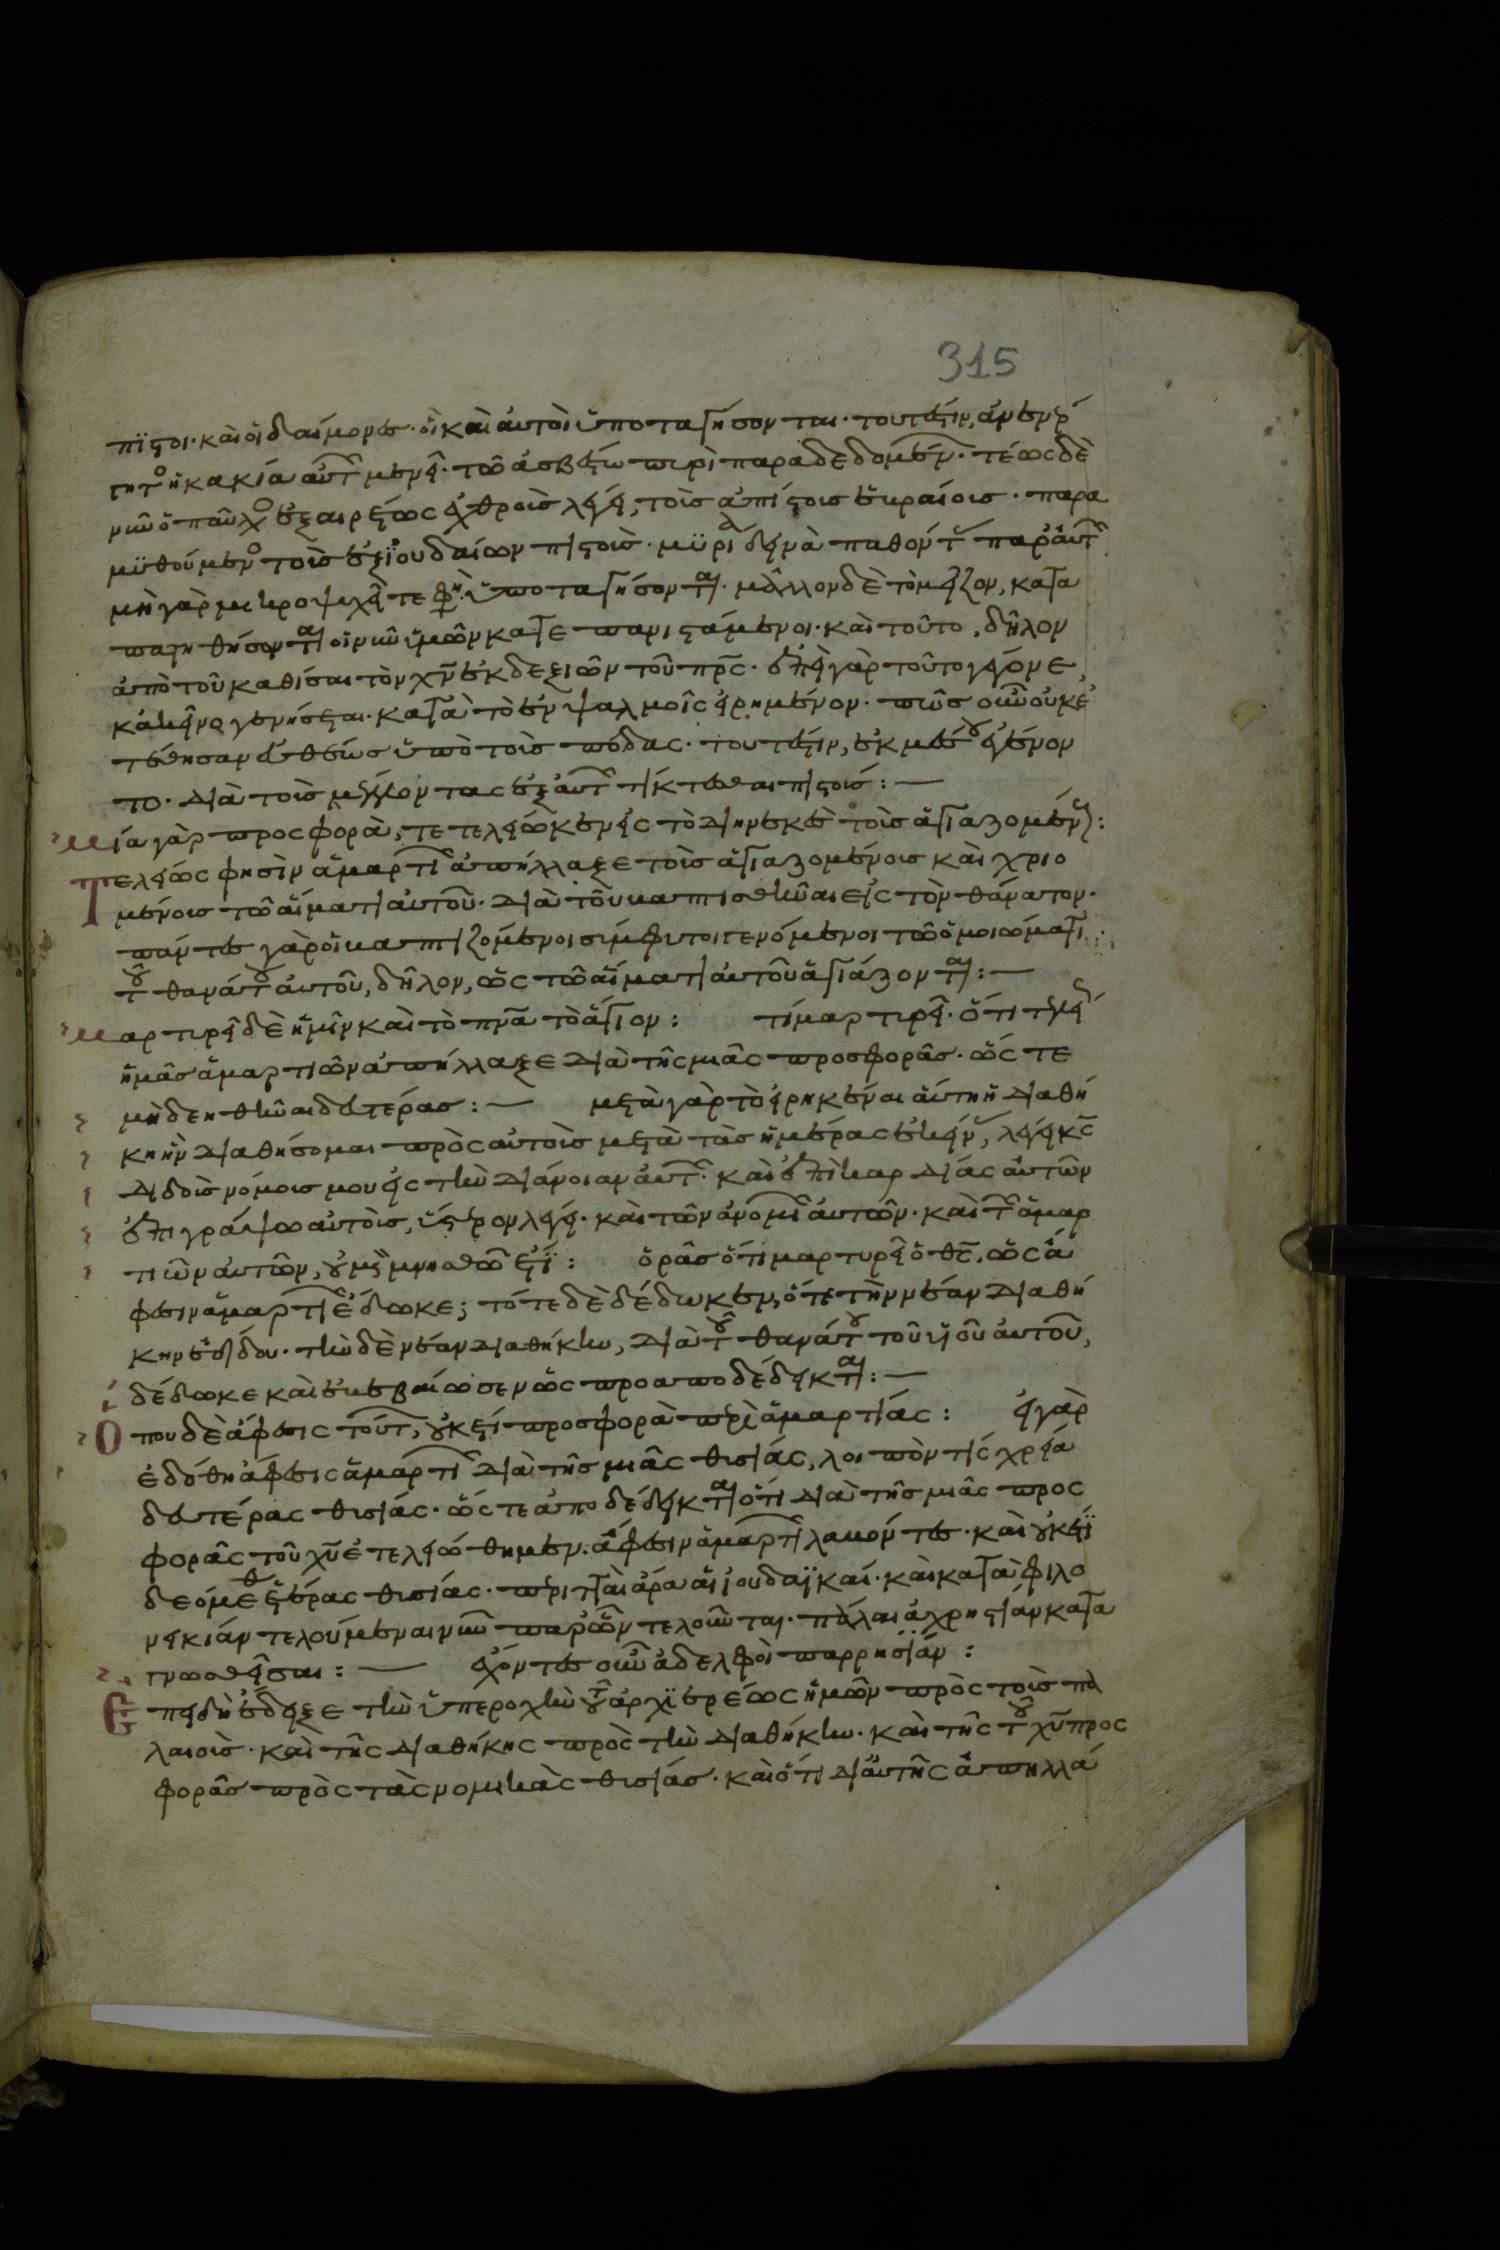 315
πϊστοι· καὶ οἱ δαίμονες· οἳ καὶ αὐτοὶ ὑποταγήσονται· τουτέστιν, ἀνενέρ
γητος ἡ κακία αὐτ μενεῖ· τῶ ἀσβέστω πυρὶ παραδεδομέν· τέως δὲ
νῦν ὁ παῦλος ἐξαιρέτως ἐχθροὺς λέγει, τοὺς ἀπίστους ἑβραίους· παρα
μϋθούμενος τοὺς ἐξ ϊουδαίων πιστοὺς· μϋρία δεινὰ παθόντας παρ' αὐτ
μὴ γὰρ μικροψυχεῖτε φησὶ· ὑποταγήσονται· μᾶλλον δὲ τὸ μεῖζον, κατα
πατηθήσονται οἱ νῦν ὑμῶν κατεπανιστάμενοι· καὶ τοῦτο, δῆλον
ἀπὸ τοῦ καθίσαι τὸν χν ἐκ δεξιῶν τοῦ πρς· ἐπεὶ γὰρ τοῦτο γέγονε,
κἀκεῖνο γενήσεται· κατὰ τὸ ἐν ψαλμοῖς εἰρημένον· πῶς οὖν οὐκ ἐ
τέθησαν εὐθέως ὑπὸ τοὺς πόδας· τουτέστιν, ἐκ μέσου ἐγένον
το· διὰ τοὺς μέλλοντας ἐξ αὐτ τίκτεσθαι πιστούς: —
Μιᾶ γὰρ προσφορᾶ, τετελείωκεν εἰς τὸ διηνεκὲς τοὺς ἁγιαζομένους:
Τελείως φησὶν ἁμαρτι ἀπήλλαξε τοὺς ἁγιαζομένους καὶ χριο
μένους τῶ αἵματι αὐτοῦ· διὰ τοῦ βαπτισθῆναι εἰς τὸν θάνατον·
πάντες γὰρ οἱ βαπτιζόμενοι σύμφυτοι γενόμενοι τῶ ὁμοιώματι
τοῦ θανάτου αὐτοῦ, δῆλον, ὡς τῶ αἵματι αὐτοῦ ἁγιάζονται: —
Μαρτυρεῖ δὲ ἡμῖν καὶ τὸ πνα τὸ ἅγιον: τί μαρτυρεῖ· ὅτι τελεί
ἡμᾶς ἁμαρτιῶν ἀπήλλαξε διὰ τῆς μιᾶς προσφορᾶς· ὥστε
μὴ δεηθῆναι δευτέρας: — μετὰ γὰρ τὸ εἰρηκέναι αὕτη ἡ διαθή
κη ἣν διαθήσομαι πρὸς αὐτοὺς μετὰ τὰς ἡμέρας ἐκείνας, λέγει κς
διδοὺς νόμους μου εἰς τὴν διάνοιαν αὐτ· καὶ ἐπὶ καρδίας αὐτῶν
ἐπιγράψω αὐτούς, ὕστερον λέγει· καὶ τῶν ἀνομι αὐτῶν· καὶ τ ἁμαρ
τιῶν αὐτῶν, οὐ μὴ μνησθῶ ἔτι: ὁρᾶς ὅτι μαρτυρεῖ ὁ θς, ὡς ἄ
φεσιν ἁμαρτι ἔδωκε; τότε δὲ δέδωκεν, ὅτε τὴν νέαν διαθή
κην ἐδίδου· τὴν δὲ νέαν διαθήκην, διὰ τοῦ θανάτου τοῦ υἱοῦ αὐτοῦ,
δέδωκε καὶ ἐβεβαίωσεν ὡς προαποδέδεικται: —
Οπου δὲ ἄφεσις τούτ, οὐκέτι προσφορὰ περὶ ἁμαρτίας: εἰ γὰρ
ἐδόθη ἄφεσις ἁμαρτι διὰ τῆς μιᾶς θυσίας, λοιπὸν τίς χρεία
δευτέρας θυσίας· ὥστε ἀποδέδεικται ὅτι διὰ τῆς μιᾶς προσ
φορᾶς τοῦ χυ ἐτελειώθημεν· ἄφεσιν ἁμαρτι λαβόντες· καὶ οὐκέτι
δεόμεθ ἑτέρας θυσίας· περιτταὶ ἄρα αἱ ϊουδαϊκαί· καὶ κατὰ φιλο
νεικίαν τελούμεναι νῦν παρ' ὧν τελοῦνται· πάλαι ἀχρηστίαν κατα
γνωσθεῖσαι: — ἔχοντες οὖν ἀδελφοὶ παρρησίαν:
Επειδὴ ἔδειξε τὴν ὑπεροχὴν τοῦ ἀρχϊερέως ἡμῶν πρὸς τοὺς πα
λαιούς· καὶ τῆς διαθήκης πρὸς τὴν διαθήκην· καὶ τῆς τοῦ χυ προσ
φορᾶς πρὸς τὰς νομικὰς θυσίας· καὶ ὅτι δι' αὐτῆς ἀπηλλά